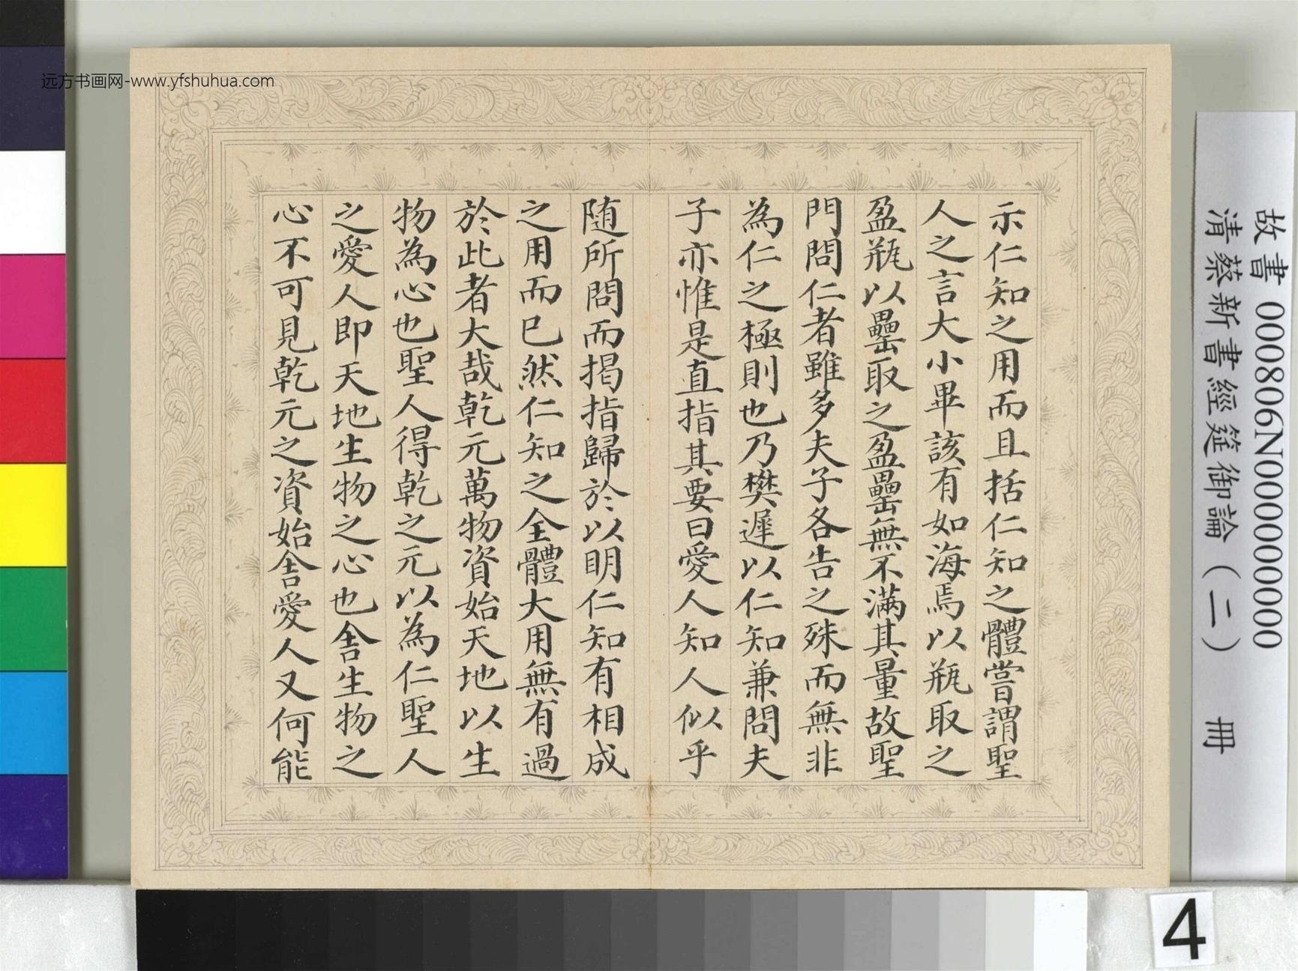 远方书画网-www.yfshuhua.com
示仁知之用而且括仁知之體嘗謂聖
人之言大小畢該有如海焉以瓶取之
盈瓶以罍取之盈罍無不滿其量故聖
門問仁者雖多夫子各告之殊而無非
為仁之極則也乃樊遲以仁知兼問夫
子亦惟是直指其要曰愛人知人似乎
随所問而揭指歸於以明仁知有相成
之用而已然仁知之全體大用無有過
於此者大哉乾元萬物資始天地以生
物為心也聖人得乾之元以為仁聖人
之愛人即天地生物之心也舍生物之
心不可見乾元之資始舍愛人又何能
故書 000806N000000000
清蔡新書經筵御論（二） 冊
4